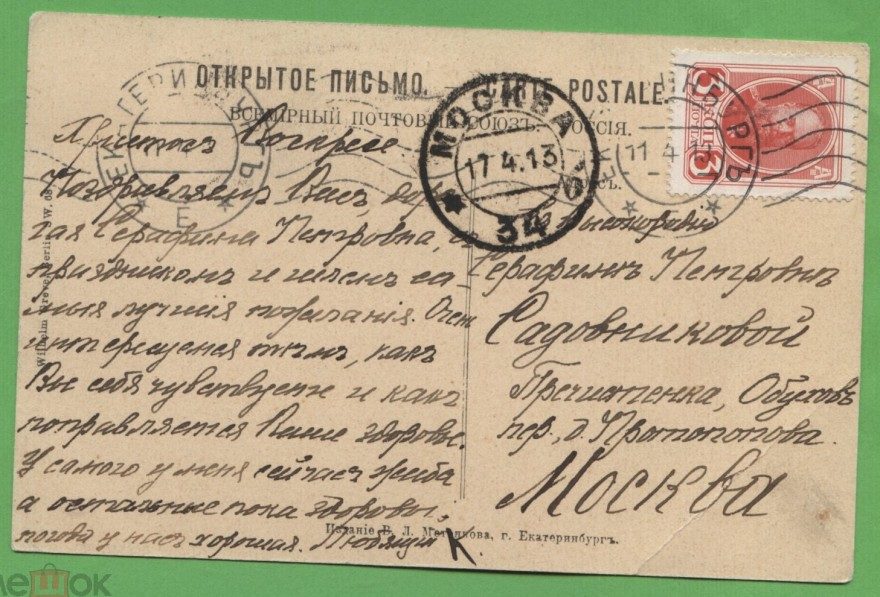 ОТКРЫТОЕ ПИСЬМО. CARTE POSTALE.
ВСЕМІРНЫЙ ПОЧТОВЫЙ СОЮЗЪ. РОССІЯ.
МОСКВА
17.4.13
34
11 4 13
3
КОП
3
Христосъ Воскресе
Поздравляемъ Васъ, доро
гая Серафима Петровна, съ
праздникомъ и шлемъ са
мыя лучшія пожеланія. Очень
интересуемся тѣмъ, какъ
Вы себя чувствуете и какъ
поправляется Ваше здоровье.
У самого у меня сейчасъ жаба
а остальные пока здоровы,
погода у насъ хорошая. Любящій К.
Ея Высокородію
Серафимѣ Петровнѣ
Садовниковой
Пречистенка, Обуховъ
пер., д. Протопопова.
Москва
Изданіе В. Л. Метенкова, г. Екатеринбургъ.
Berlin S.W. 68